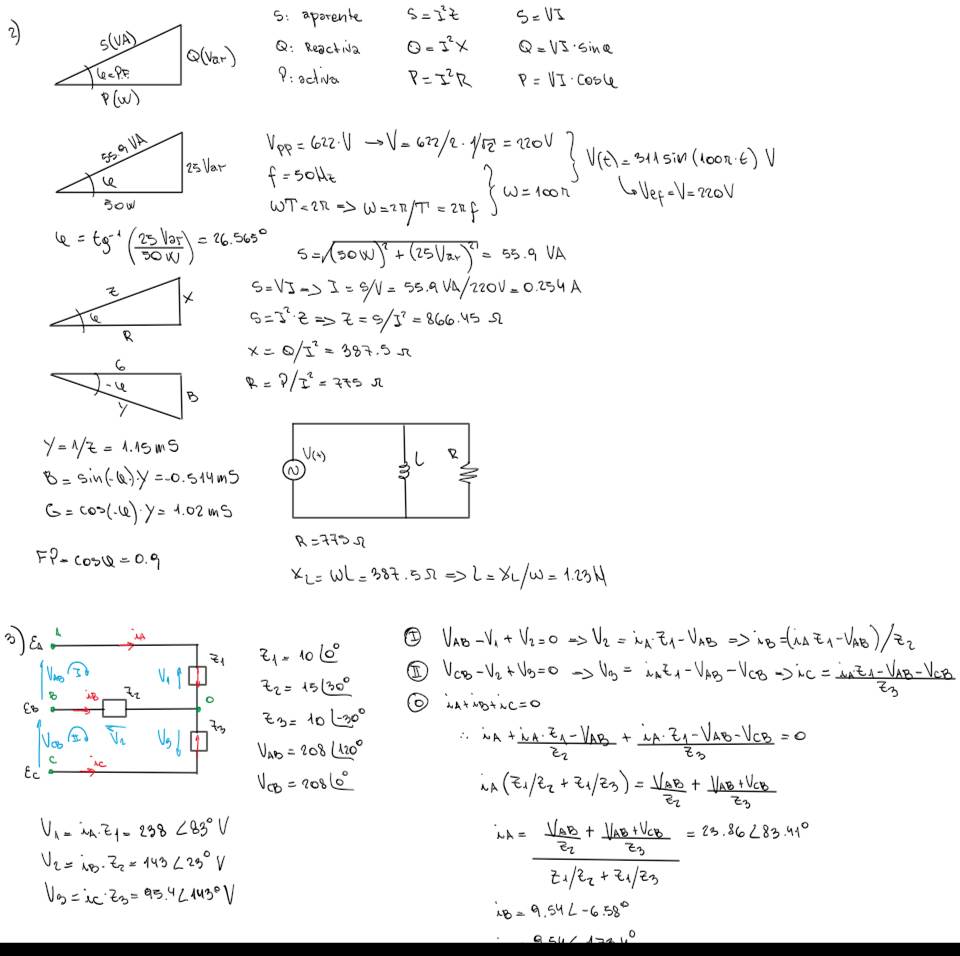 2)
S: aparente S = I²Z S = VI
Q: Reactiva Q = I²X Q = VI·sinφ
P: activa P = I²R P = VI·cosφ
S(VA)
Q(Var)
φ=P.F.
P(W)
55.9 VA
25 Var
φ
50W
Vpp = 622·V → V = 622/2·1/√2 = 220V
f = 50Hz
ωT = 2π => ω = 2π/T = 2πf
ω = 100π
V(t) = 311 sin(100π·t) V
↳ Vef = V = 220V
φ = tg⁻¹ (25 Var / 50 W) = 26.565°
S = √((50W)² + (25Var)²) = 55.9 VA
Z
X
φ
R
S = VI => I = S/V = 55.9 VA/220V = 0.254 A
S = I²·Z => Z = S/I² = 866.45 Ω
X = Q/I² = 387.5 Ω
R = P/I² = 775 Ω
G
-φ
B
Y
Y = 1/Z = 1.15 mS
B = sin(-φ)·Y = -0.514 mS
G = cos(-φ)·Y = 1.02 mS
FP = cosφ = 0.9
V(t)
L
R
R = 775 Ω
XL = ωL = 387.5 Ω => L = XL/ω = 1.23H
3)
EA A iA
VAB I V1 Z1
B iB Z2 O
EB
VCB II V2 V3 Z3
C iC
EC
Z1 = 10∠0°
Z2 = 15∠30°
Z3 = 10∠-30°
VAB = 208∠120°
VCB = 208∠0°
I VAB - V1 + V2 = 0 => V2 = iA·Z1 - VAB => iB = (iA Z1 - VAB)/Z2
II VCB - V2 + V3 = 0 => V3 = iAZ1 - VAB - VCB => iC = (iAZ1 - VAB - VCB)/Z3
O iA + iB + iC = 0
∴ iA + (iA·Z1 - VAB)/Z2 + (iA·Z1 - VAB - VCB)/Z3 = 0
iA (Z1/Z2 + Z1/Z3) = VAB/Z2 + (VAB + VCB)/Z3
iA = (VAB/Z2 + (VAB + VCB)/Z3) / (Z1/Z2 + Z1/Z3) = 23.86∠83.41°
iB = 9.54∠-6.58°
V1 = iA·Z1 = 238 ∠83° V
V2 = iB·Z2 = 143∠23° V
V3 = iC·Z3 = 95.4∠143° V